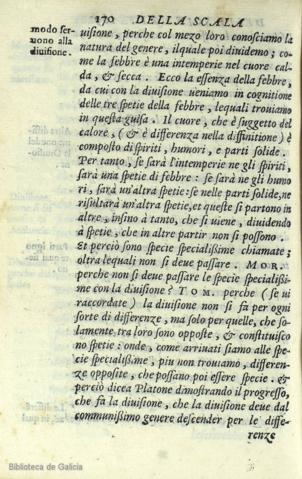 170 DELLA SCALA
modo ser-
uono alla
diuisione.
uisione, perche col mezo loro conosciamo la
natura del genere, ilquale poi diuidemo; co-
me la febbre è una intemperie nel cuore cal-
da, & secca. Ecco la essenza della febbre,
da cui con la diuisione ueniamo in cognitione
delle tre spetie della febbre, lequali trouiamo
in questa guisa. Il cuore, che è suggetto del
calore, (& è differenza nella diffinitione) è
composto di spiriti, humori, e parti solide.
Per tanto, se sarà l'intemperie ne gli spiriti,
sarà una spetie di febbre: se sarà ne gli humo
ri, sarà un'altra spetie: se nelle parti solide, ne
risulterà un'altra spetie, et queste si partono in
altre, insino à tanto, che si uiene, diuidendo
à spetie, che in altre partir non si possono.
Et perciò sono specie specialissime chiamate;
oltra lequali non si deue passare. MOR.
perche non si deue passare le specie specialissi-
me con la diuisione? TOM. perche (se ui
raccordate) la diuisione non si fà per ogni
sorte di differenze, ma solo per quelle, che so-
lamente tra loro sono opposte, & constituisco
no spetie: onde, come arriuati siamo alle spe-
cie specialissime, piu non trouiamo, differen-
ze opposite, che possano poi essere specie. &
perciò dicea Platone dimostrando il progresso,
che fà la diuisione, che la diuisione deue dal
communissimo genere descender per le diffe-
renze
Biblioteca de Galicia